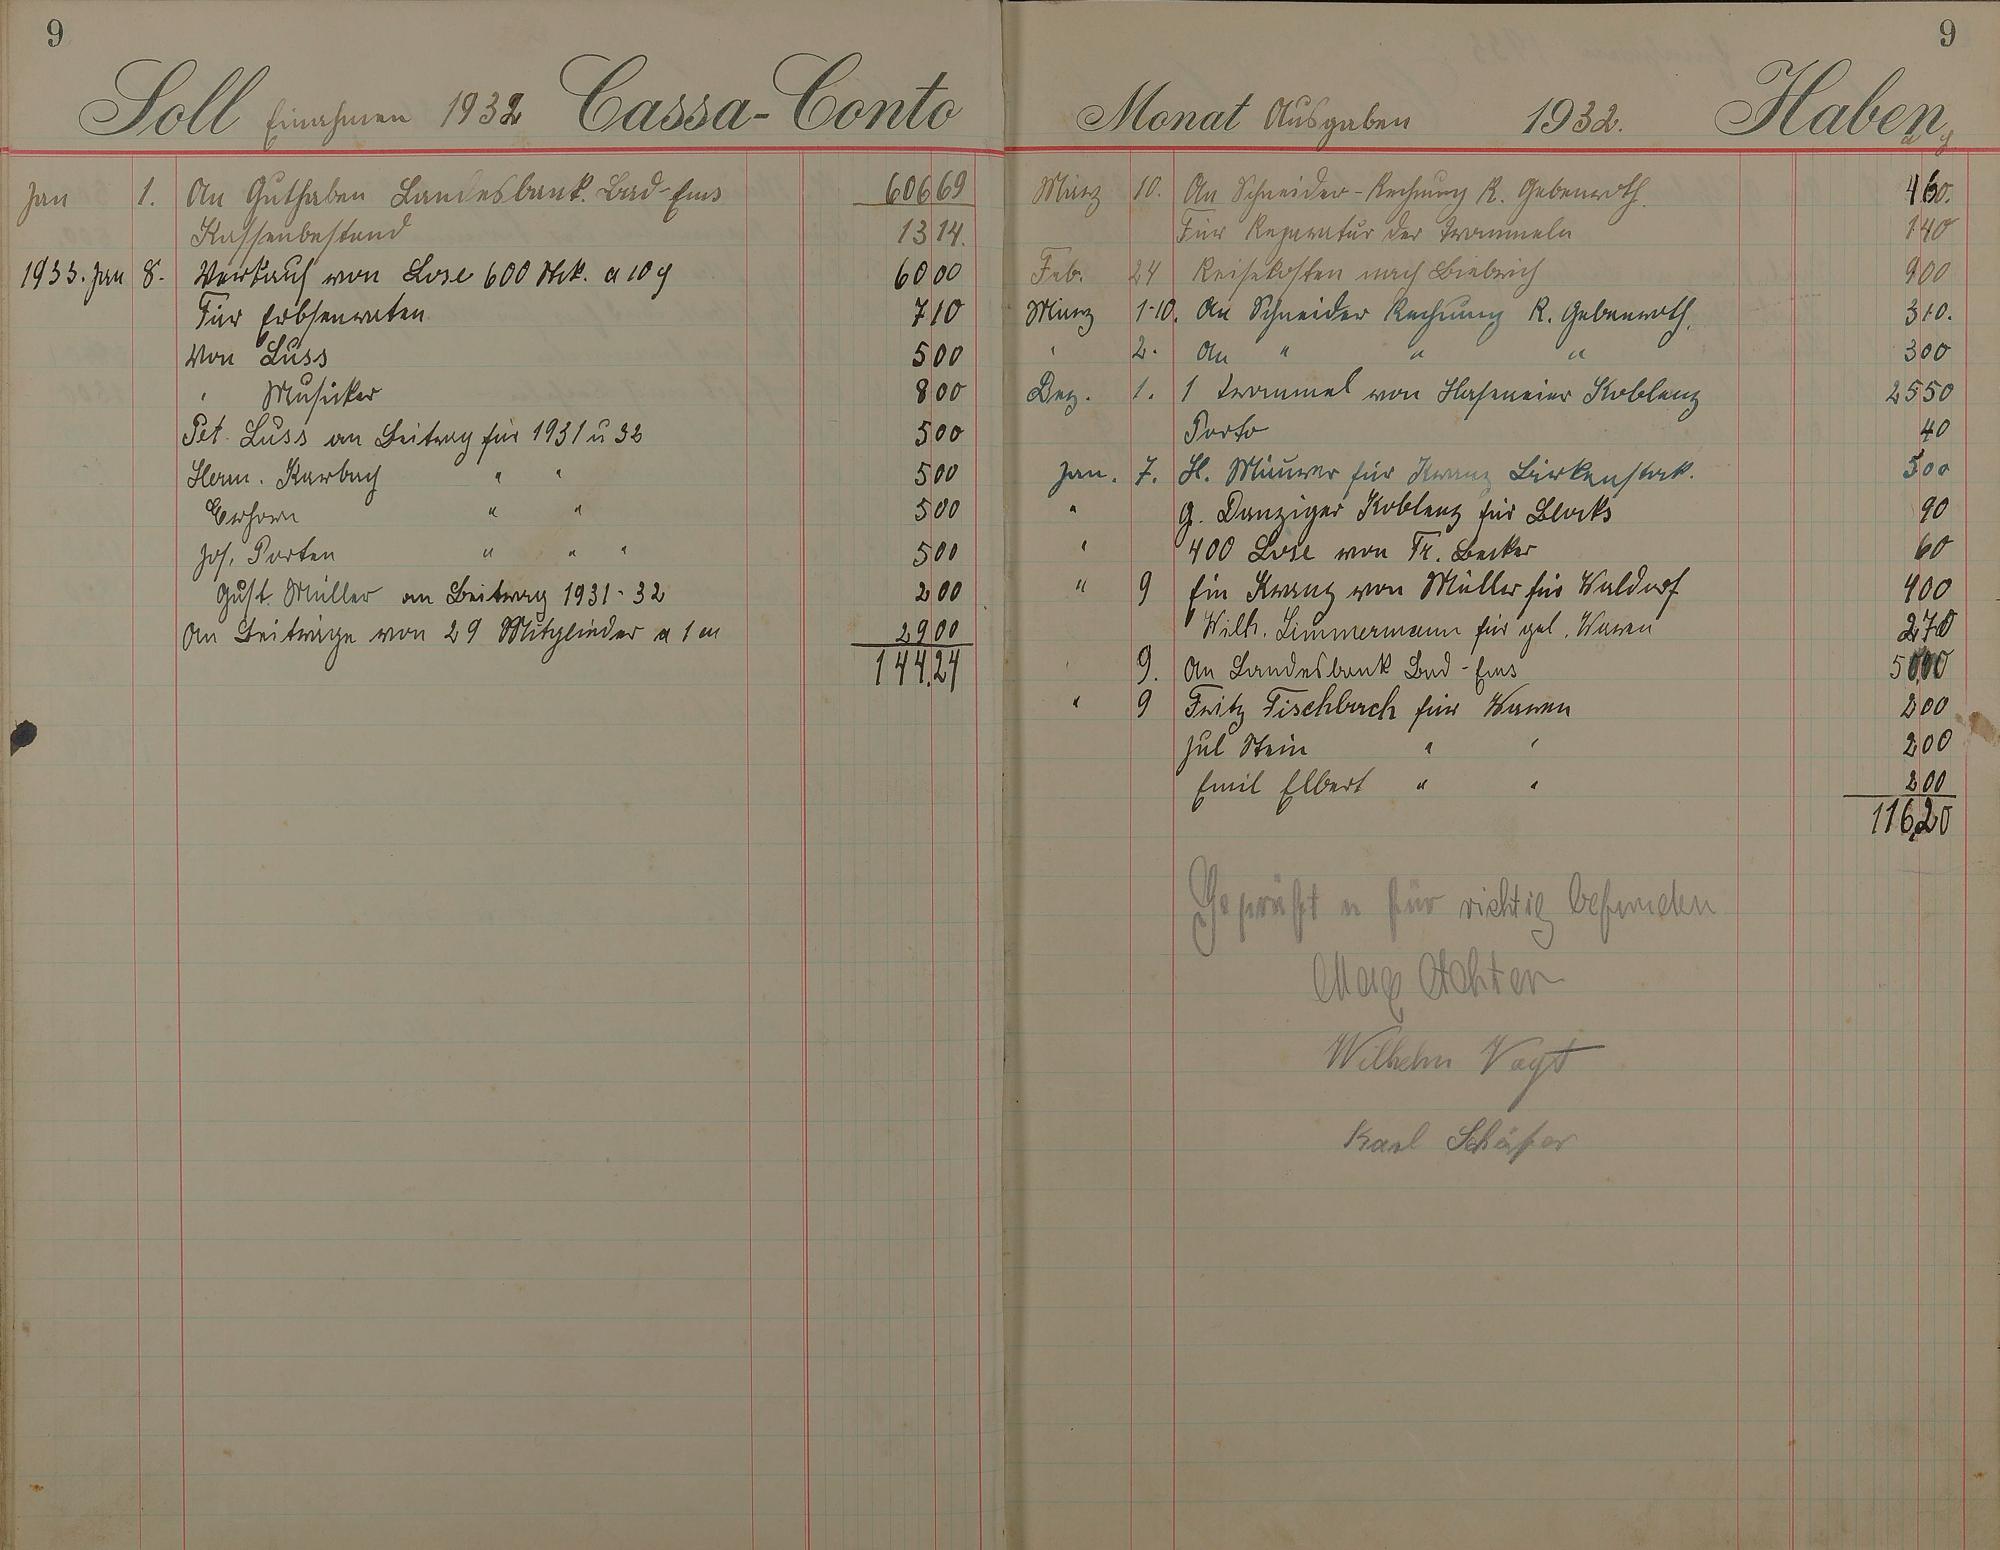 9
Soll Einahmen 1932 Cassa-Conto
Jan 1. An Guthaben Landesbank. Bad-Ems 606 69
Kassenbestand 13 14.
1933. Jan 8. Verkauf von Lose 600 Stck. a 10 ₰ 60 00
Für Erbsenraten 7 10
Von Luss 5 00
" Musiker 8 00
Pet. Luss an Beitrag für 1931 u 32 5 00
Herm. Karbach " " 5 00
Erhorn " " 5 00
Jos. Porten " " " 5 00
Gust. Müller an Beitrag 1931-32 2 00
An Beiträge von 29 Mitglieder a 1 m 29 00
144,24
9
Monat Ausgaben 1932. Haben
März 10. An Schneider-Rechnung R. Gebenroth. 4 60.
Für Reparatur der Trommeln 1 40
Feb. 24 Reisekosten nach Biebrich 9 00
März 1-10. An Schneider Rechnung R. Gebenroth. 3 10.
" 2. An " " " 3 00
Dez. 1. 1 Trommel von Haseneier Koblenz 25 50
Porto 40
Jan. 7. H. Maurer für Kranz Birkenstock. 5 00
" G. Danziger Koblenz für Blocks 90
" 400 Lose von Fr. Becker 60
" 9 Ein Kranz von Müller für Waldorf 4 00
Wilh. Zimmermann für gel. Waren 2 70
9. An Landesbank Bad-Ems 50 00
" 9 Fritz Fischbach für Waren 2 00
Jul Stein " " 2 00
Emil Elbert " " 2 00
116,20
Geprüft u für richtig befunden
Max Achter
Wilhelm Vogt
Karl Schäfer